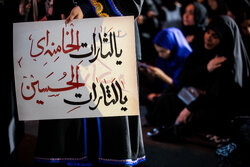 یالثارات الخامنه‌ای
یالثارات الحسین